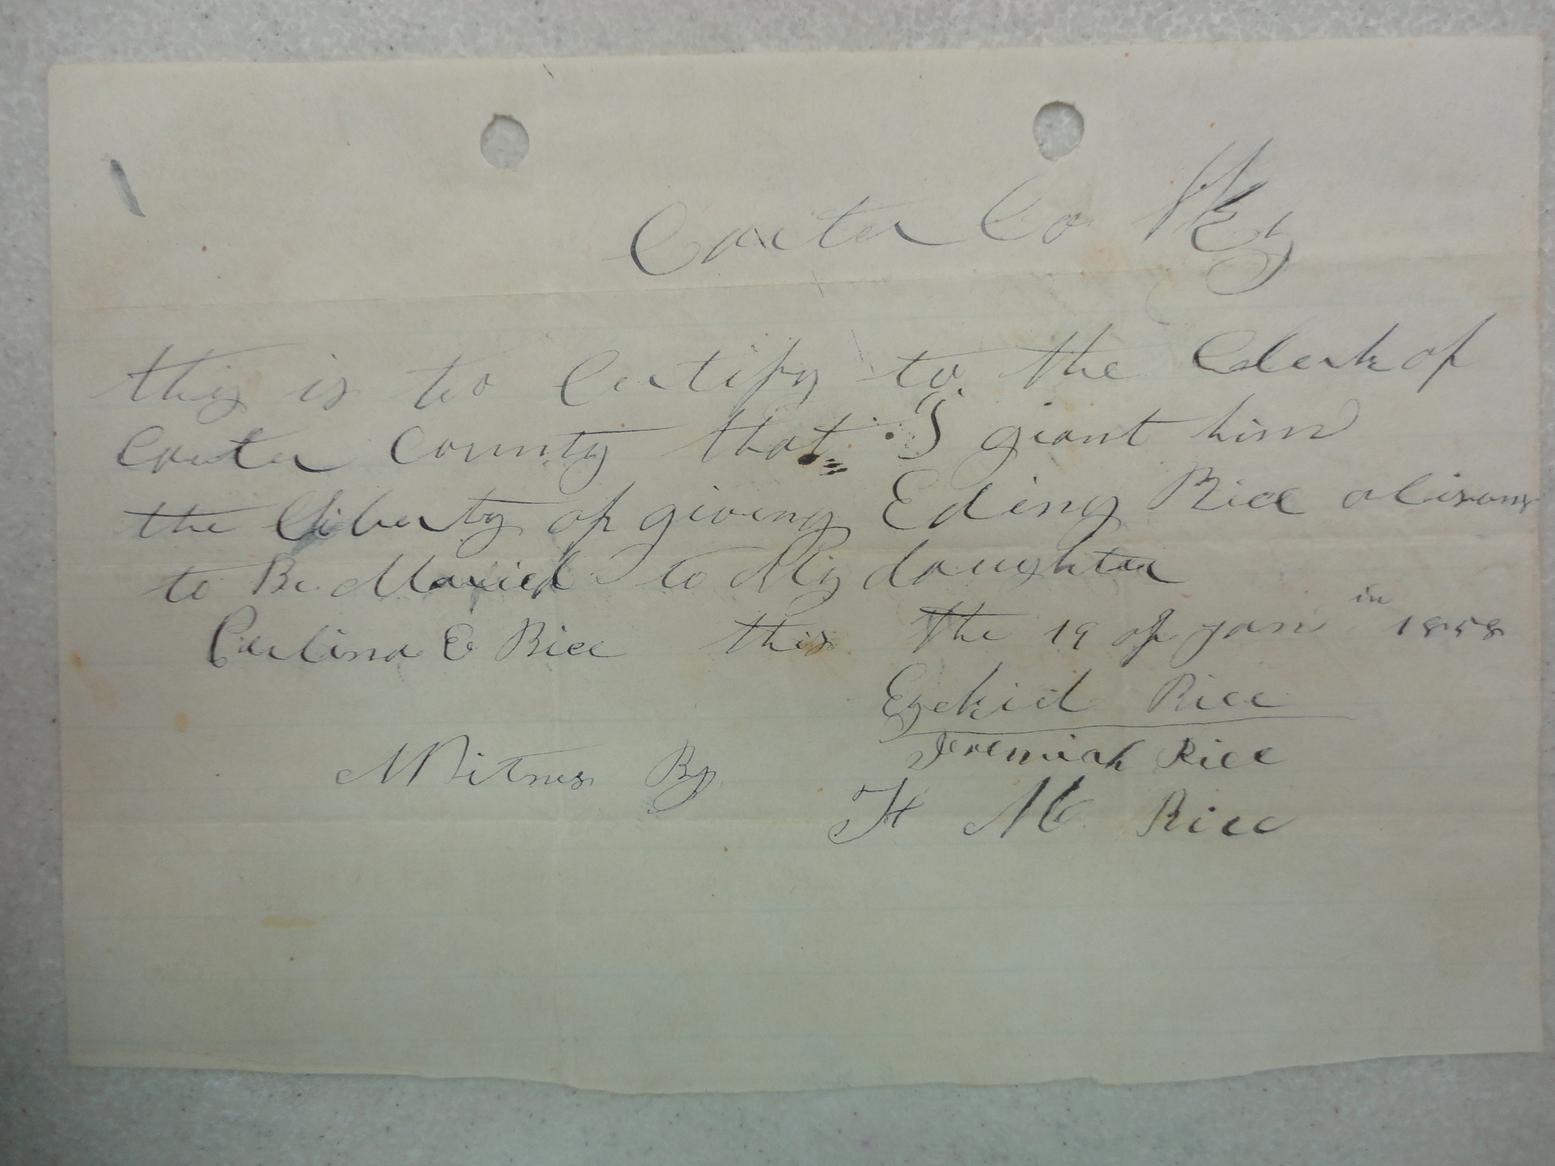 Carter Co Ky
this is to Certify to the Clerk of
Carter County that I grant him
the Liberty of giving Eding Rice a lisons
to Be Maried to My daughter
Perlina E Rice this the 19 of jan in 1858
Ezekiel Rice
Jeremiah Rice
Witness By
H M Rice